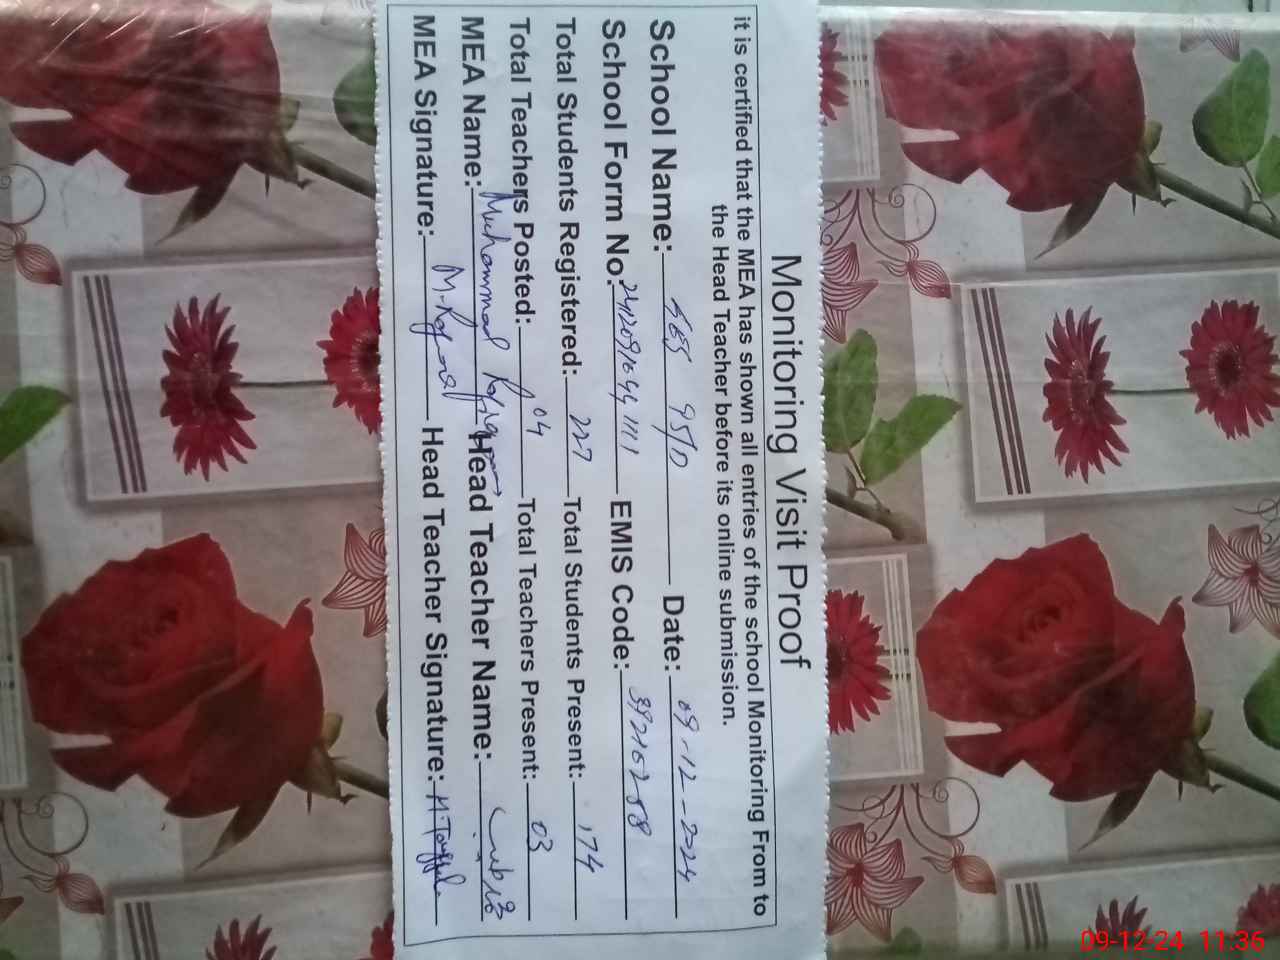 Monitoring Visit Proof
it is certified that the MEA has shown all entries of the school Monitoring From to
the Head Teacher before its online submission.
School Name: 95/D Date: 09-12-2024
School Form No: EMIS Code:
Total Students Registered: 227 Total Students Present: 174
Total Teachers Posted: 04 Total Teachers Present: 03
MEA Name: Muhammad Head Teacher Name:
MEA Signature: Head Teacher Signature:
09-12-24 11:36